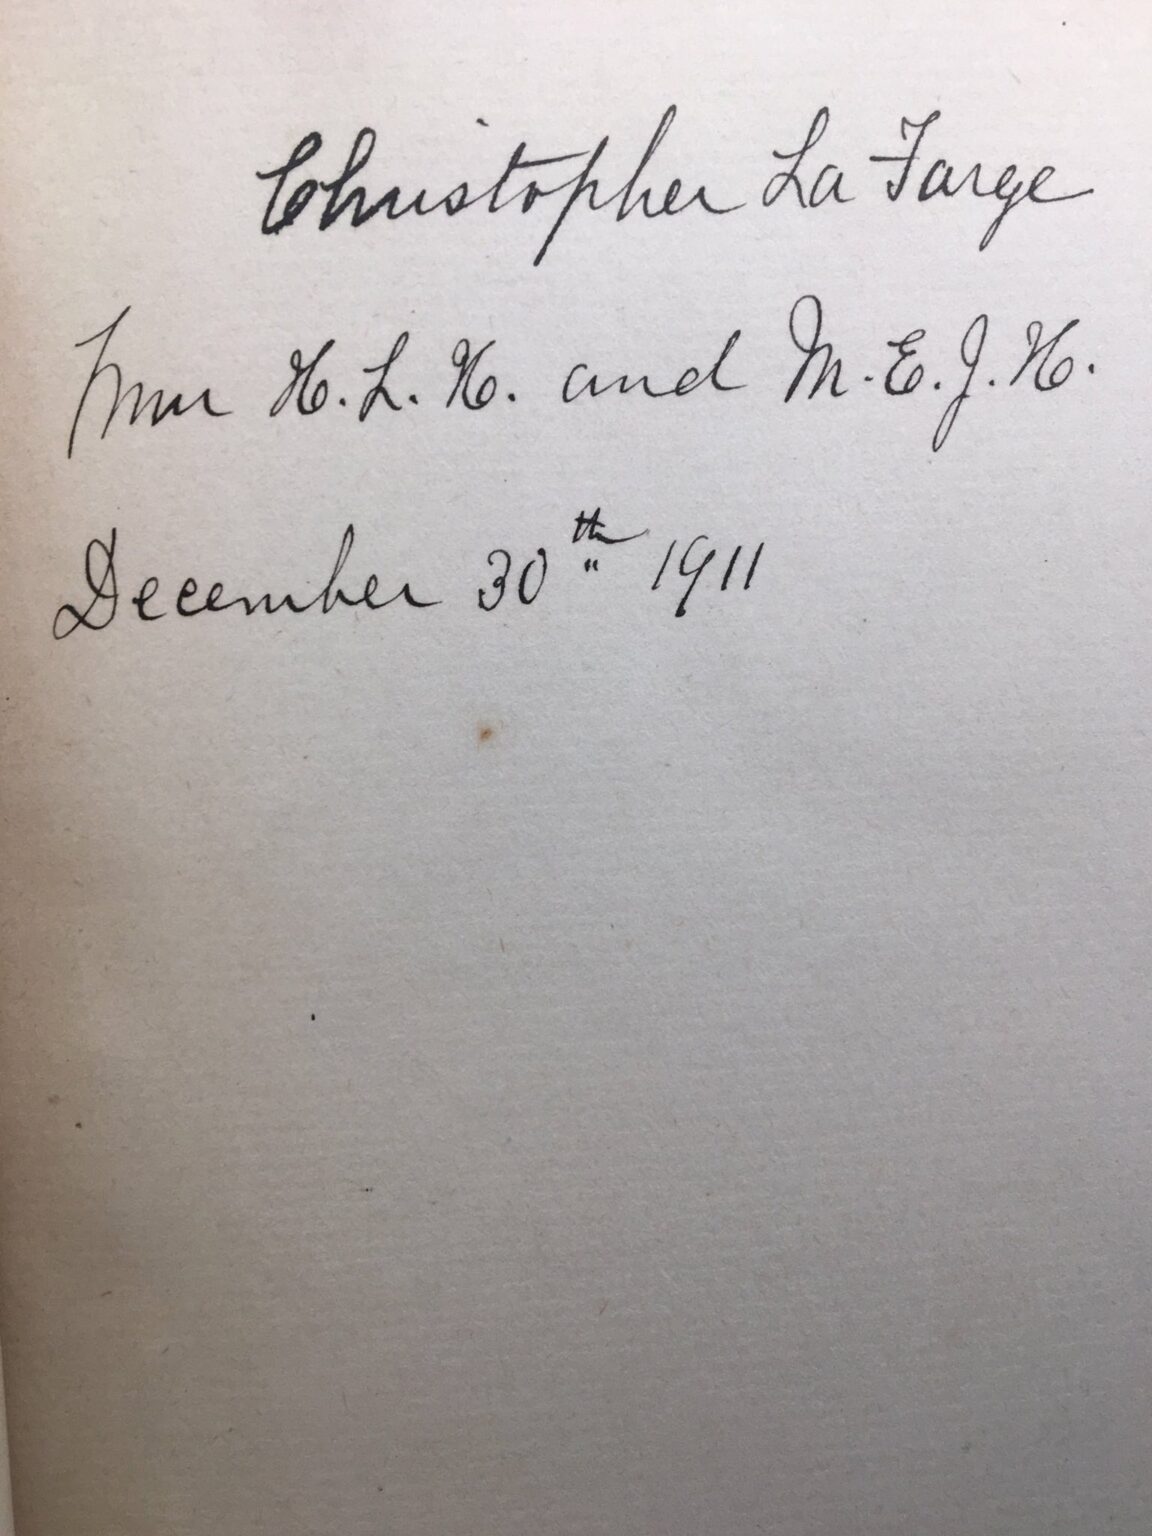 Christopher La Farge
from H. L. H. and M. E. J. H.
December 30th 1911